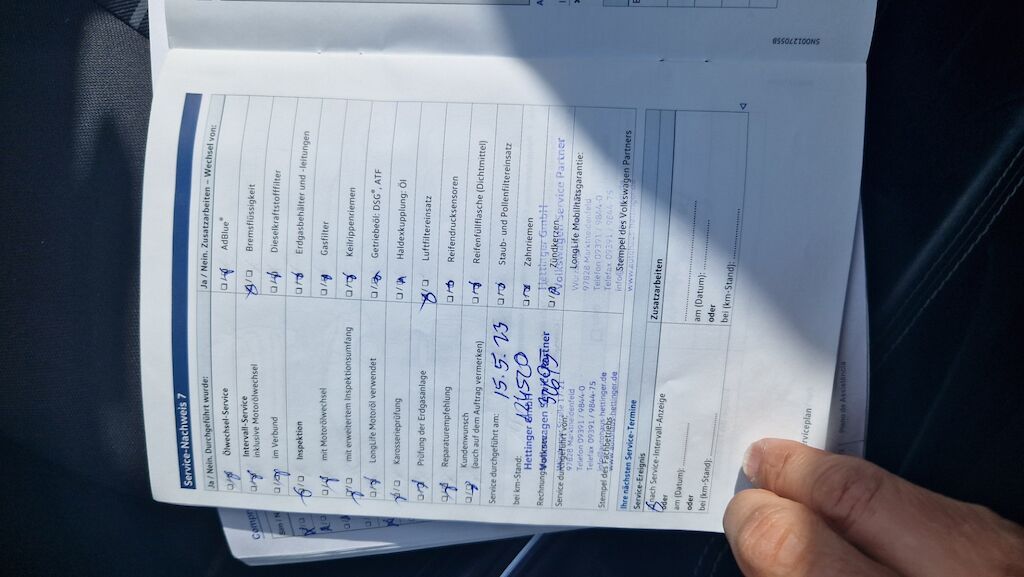 Service-Nachweis 7
Ja / Nein. Durchgeführt wurde:
Ölwechsel-Service
Intervall-Service
inklusive Motorölwechsel
im Verbund
Inspektion
mit Motorölwechsel
mit erweitertem Inspektionsumfang
LongLife Motoröl verwendet
Karosserieprüfung
Prüfung der Erdgasanlage
Reparaturempfehlung
Kundenwunsch
(auch auf dem Auftrag vermerken)
Service durchgeführt am: 15.5.23
bei km-Stand: 124520
Hettinger GmbH
Volkswagen Service Partner
Service durchgeführt von:
97828 Marktheidenfeld
Telefon 09391 / 9844-0
Telefax 09391 / 9844-75
Stempel des Fachbetriebs
Ja / Nein. Zusatzarbeiten – Wechsel von:
AdBlue®
Bremsflüssigkeit
Dieselkraftstofffilter
Erdgasbehälter und -leitungen
Gasfilter
Keilrippenriemen
Getriebeöl: DSG®, ATF
Haldexkupplung: Öl
Luftfiltereinsatz
Reifendrucksensoren
Reifenfüllflasche (Dichtmittel)
Staub- und Pollenfiltereinsatz
Zahnriemen
Hettinger GmbH
Zündkerzen
Volkswagen Service Partner
LongLife Mobilitätsgarantie:
97828 Marktheidenfeld
Telefon 09391 / 9844-0
Telefax 09391 / 9844-75
Stempel des Volkswagen Partners
Ihre nächsten Service-Termine
Service-Ereignis
nach Service-Intervall-Anzeige
oder
am (Datum):
oder
bei (km-Stand):
Zusatzarbeiten
am (Datum):
oder
bei (km-Stand):
serviceplan
5N0012705SB